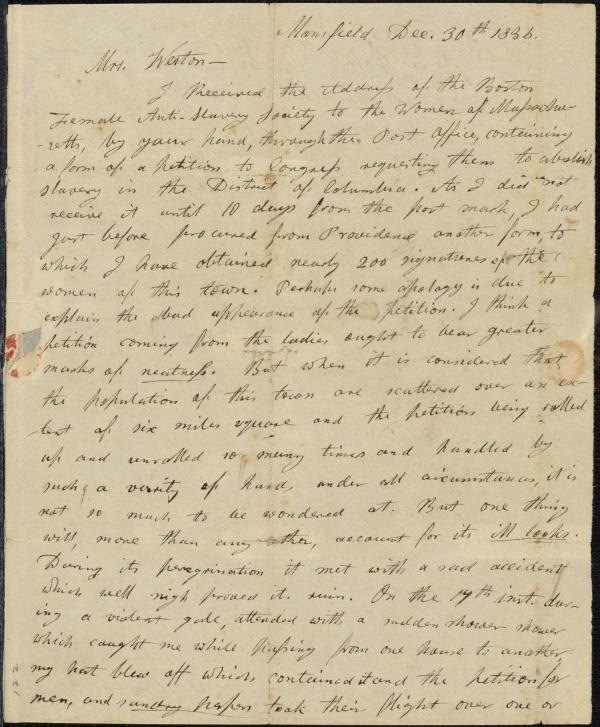 Mansfield Dec. 30th 1836.
Mrs. Weston—
I Received the Address of the Boston
Female Anti-Slavery Society to the Women of Massachu-
-setts, by your hand, through the Post Office, containing
a form of a petition to Congress requesting them to abolish
slavery in the District of Columbia. As I did not
receive it until 10 days from the post mark, I had
just before procured from Providence another form, to
which I have obtained nearly 200 signatures of the
women of this town. Perhaps some apology is due to
explain the bad appearance of the petition. I think a
petition coming from the ladies ought to bear greater
marks of neatness. But when it is considered that
the population of this town are scattered over an ex-
-tent of six miles square and the petition being rolled
up and unrolled so many times and handled by
such a varity of hands under all circumstances, it is
not so much to be wondered at. But one thing
will, more than any other, account for its ill looks.
During its peregrination it met with a sad accident
which well nigh proved its ruin. On the 19th inst. dur-
ing a violent gale, attended with a sudden shower shower
which caught me while passing from one house to another,
my hat blew off which contained it and the petition for
men, and sundry papers took their flight over one or